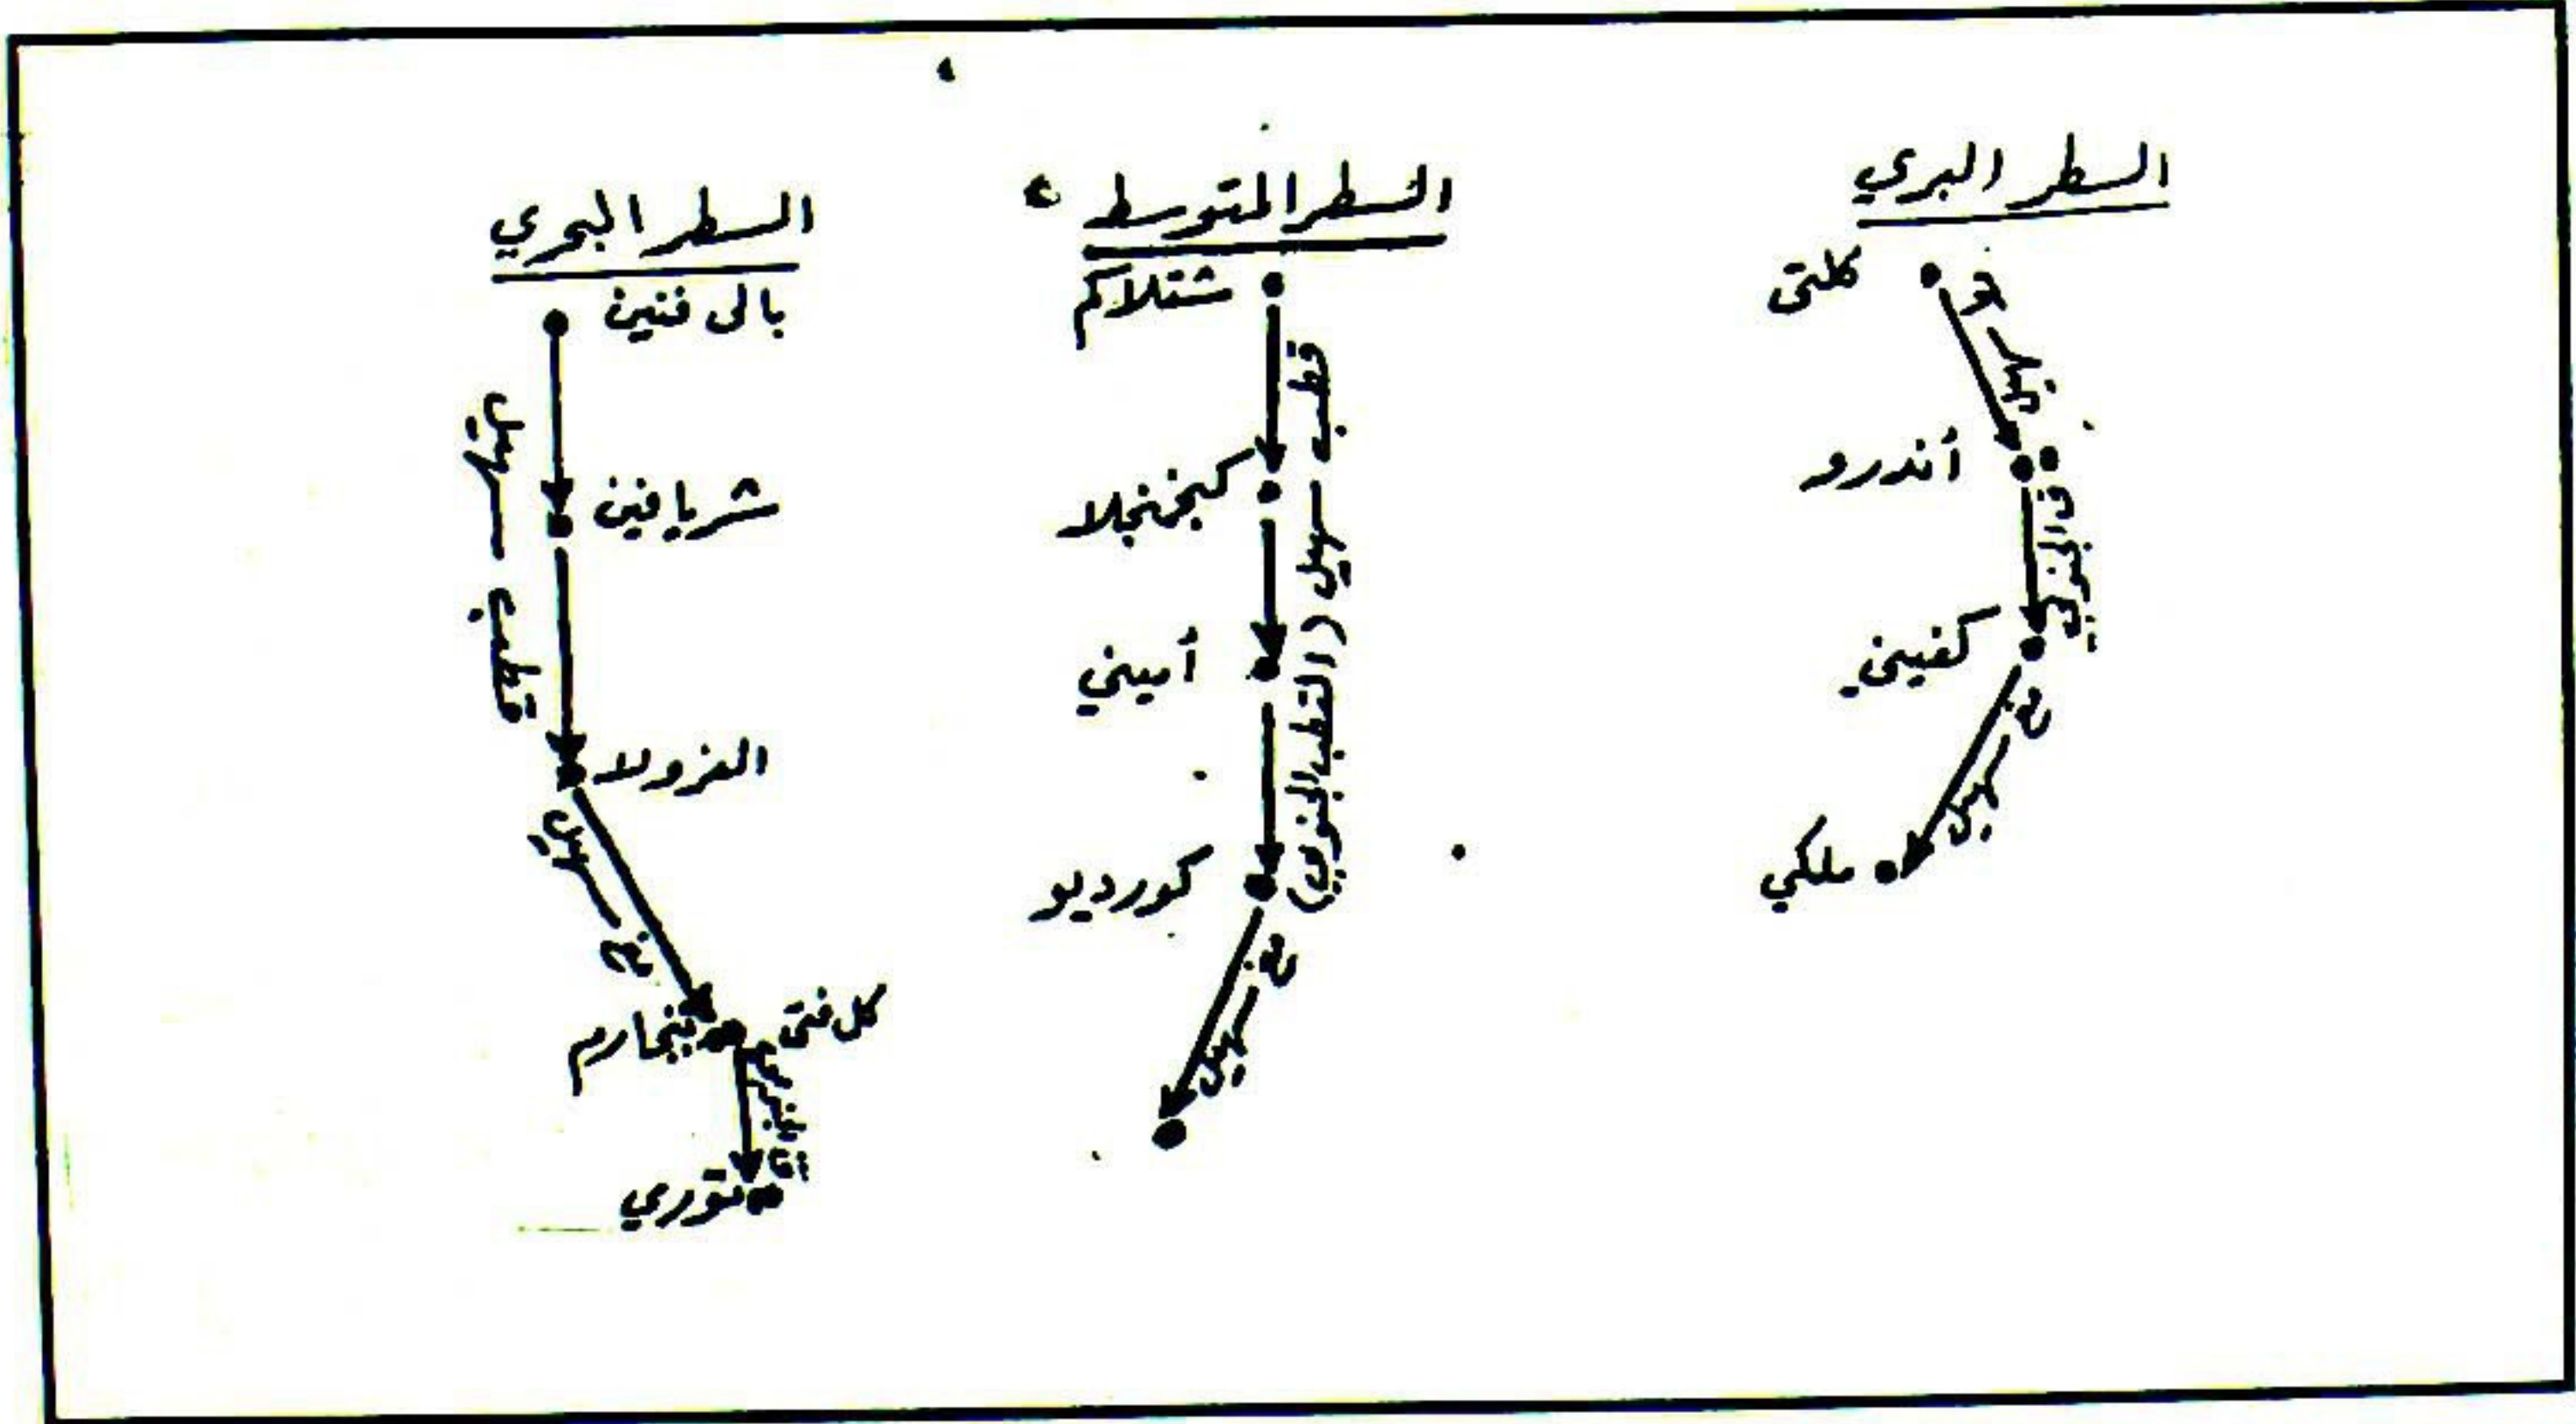 السطر البري
كلتى
سهيل
أندرو
ق الجنوبي
كفيني
سهيل
ملكي
السطر المتوسط
شتلاكم
قطب سهيل (القطب الجنوبي)
كبخنجلا
أميني
كورديو
سهيل
السطر البحري
بالى فنين
قطب سهيل
شريافين
النزولا
سهيل
كل فتى
بنجارم
توري